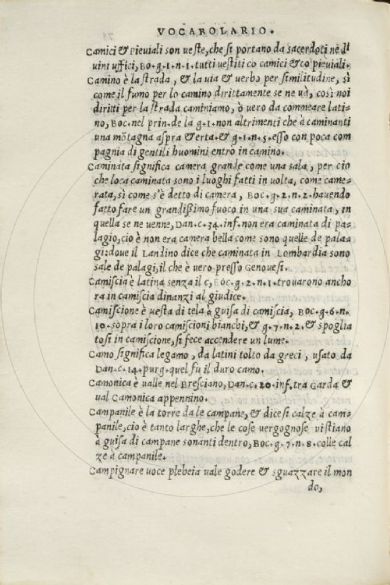 VOCABOLARIO.
Camici & Pieuiali son ueste, che si portano da sacerdoti ne di
uini uffici, BO.g.1.n.1. tutti uestiti co camici & co pieuiali.
Camino è la strada, & la uia & uerbo per similitudine, sì
come il fumo per lo camino dirittamente se ne uà, così noi
diritti per la strada caminiamo, ò uero da commeare lati-
no, BOC.nel prin.de la g.1.non altrimenti che à caminanti
una mōtagna aspra & erta. & g.1.n.5.esso con poca com
pagnia di gentili huomini entro in camino.
Caminata significa camera grande come una sala, per cio
che loca caminata sono i luoghi fatti in uolta, come came-
rata, sì come s'è detto di camera, BOC.g.2.n.2.hauendo
fatto fare un grandissimo fuoco in una sua caminata, in
quella se ne uenne, DAN.c.34.inf.non era caminata di pa-
lagio, cio è non era camera bella come sono quelle de pala
gi: doue il Landino dice che caminata in Lombardia sono
sale de palagi, il che è uero presso Genouesi.
Camiscia è latina senza il c, BOC.g.2.n.1.trouarono ancho
ra in camiscia dinanzi al giudice.
Camiscione è uesta di tela à guisa di camiscia, BOC.g.6.n.
10.sopra i loro camiscioni bianchi, & g.7.n.2.& spoglia
tosi in camiscione, si fece accendere un lume.
Camo significa legamo, da latini tolto da greci, usato da
DAN.c.14.purg.quel fu il duro camo.
Camonica è ualle nel Bresciano, DAN.c.20.inf.tra Garda &
ual Camonica appennino.
Campanile è la torre da le campane, & dicesi calze à cam-
panile, cio è tanto larghe, che le cose uergognose uistiano
à guisa di campane sonanti dentro, BOC.g.7.n.8.colle cal
ze à campanile.
Campignare uoce plebeia uale godere & sguazzare il mon
do,